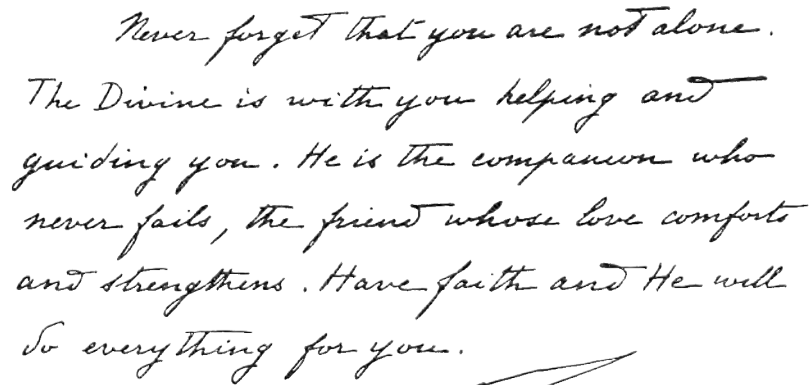 Never forget that you are not alone.
The Divine is with you helping and
guiding you. He is the companion who
never fails, the friend whose love comforts
and strengthens. Have faith and He will
do everything for you.